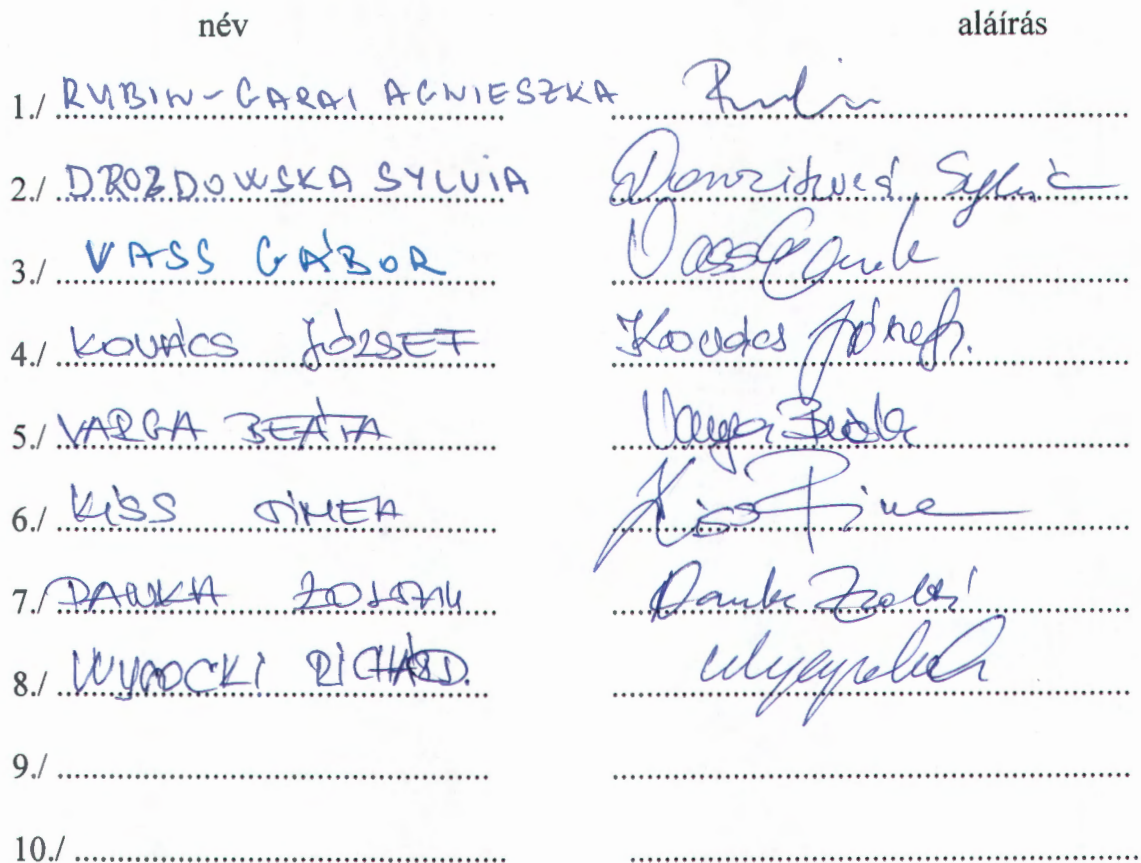 név aláírás
1./ RUBIN-GARAI AGNIESZKA
2./ DROZDOWSKA SYLVIA Sylvia
3./ VASS GÁBOR Vass
4./ KOVÁCS JÓZSEF Kovács József
5./ VARGA BEÁTA Varga Beáta
6./ KISS TÍMEA Kiss Tímea
7./ DANKA ZOLTÁN Danka Zoltán
8./ RICHÁRD.
9./
10./